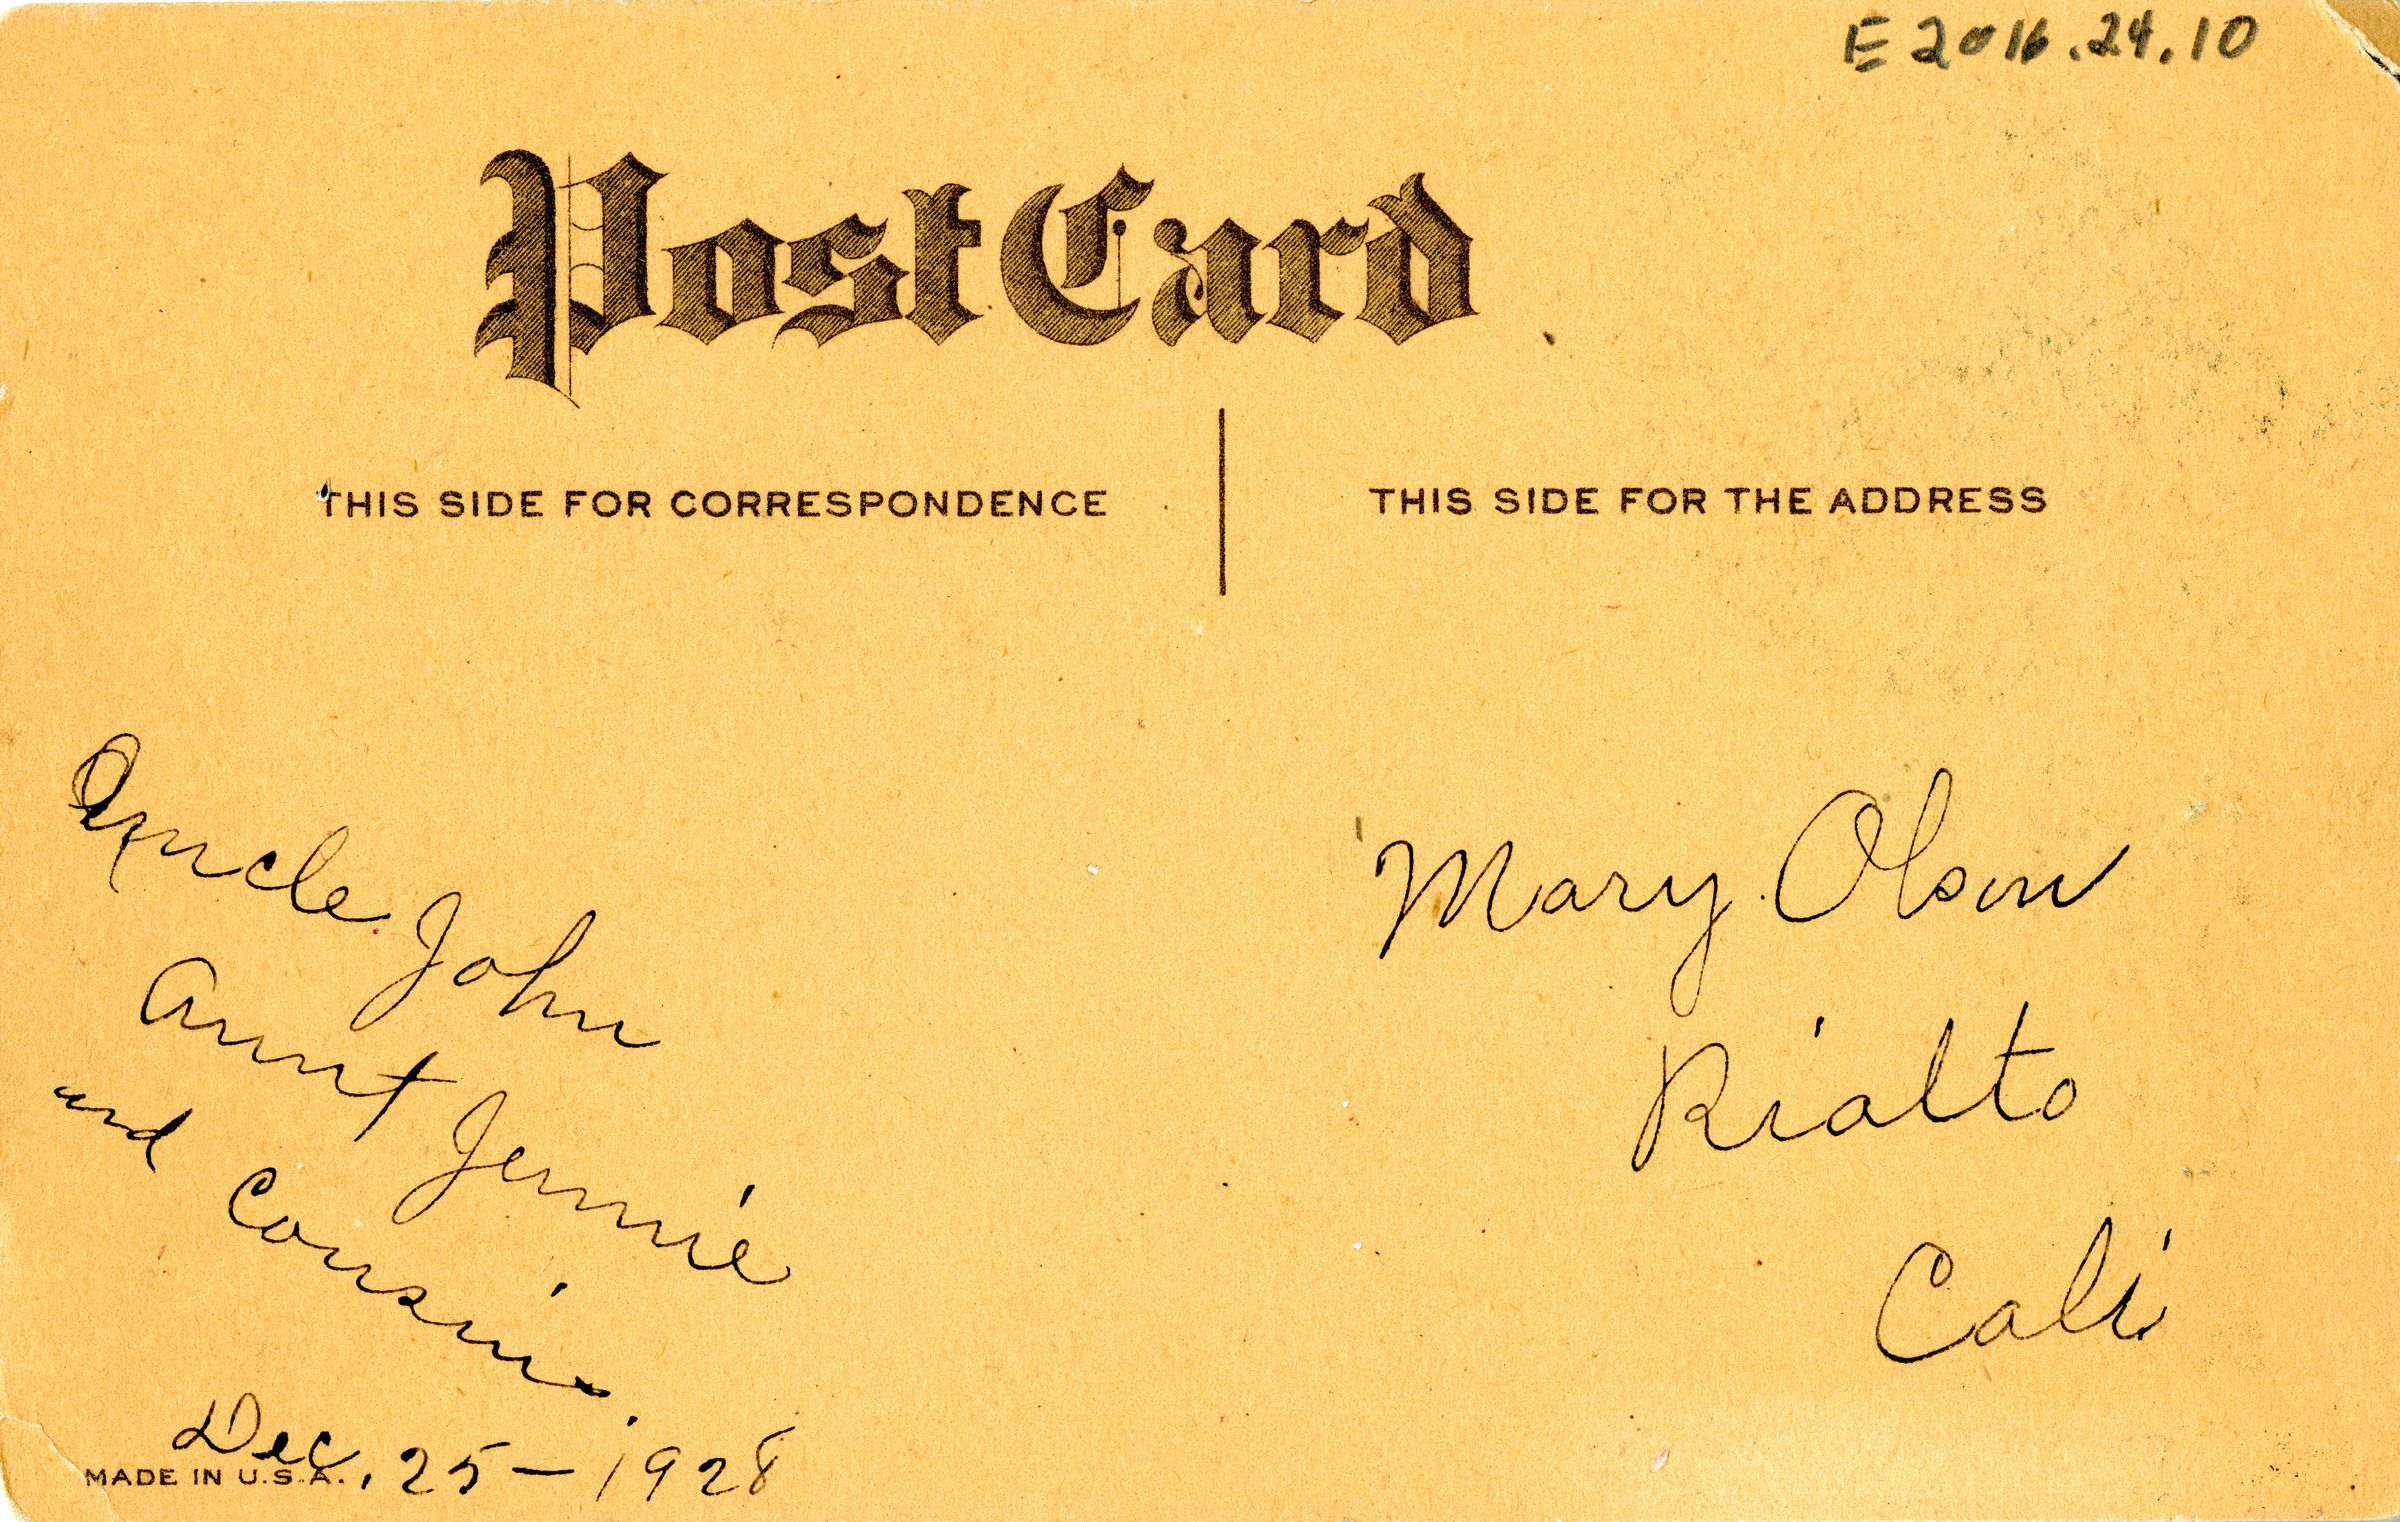 E 2016.24.10
Post Card
THIS SIDE FOR CORRESPONDENCE
THIS SIDE FOR THE ADDRESS
Uncle John
Aunt Jennie
and Cousins.
Dec. 25 - 1928
MADE IN U.S.A.
Mary Olson
Rialto
Cali